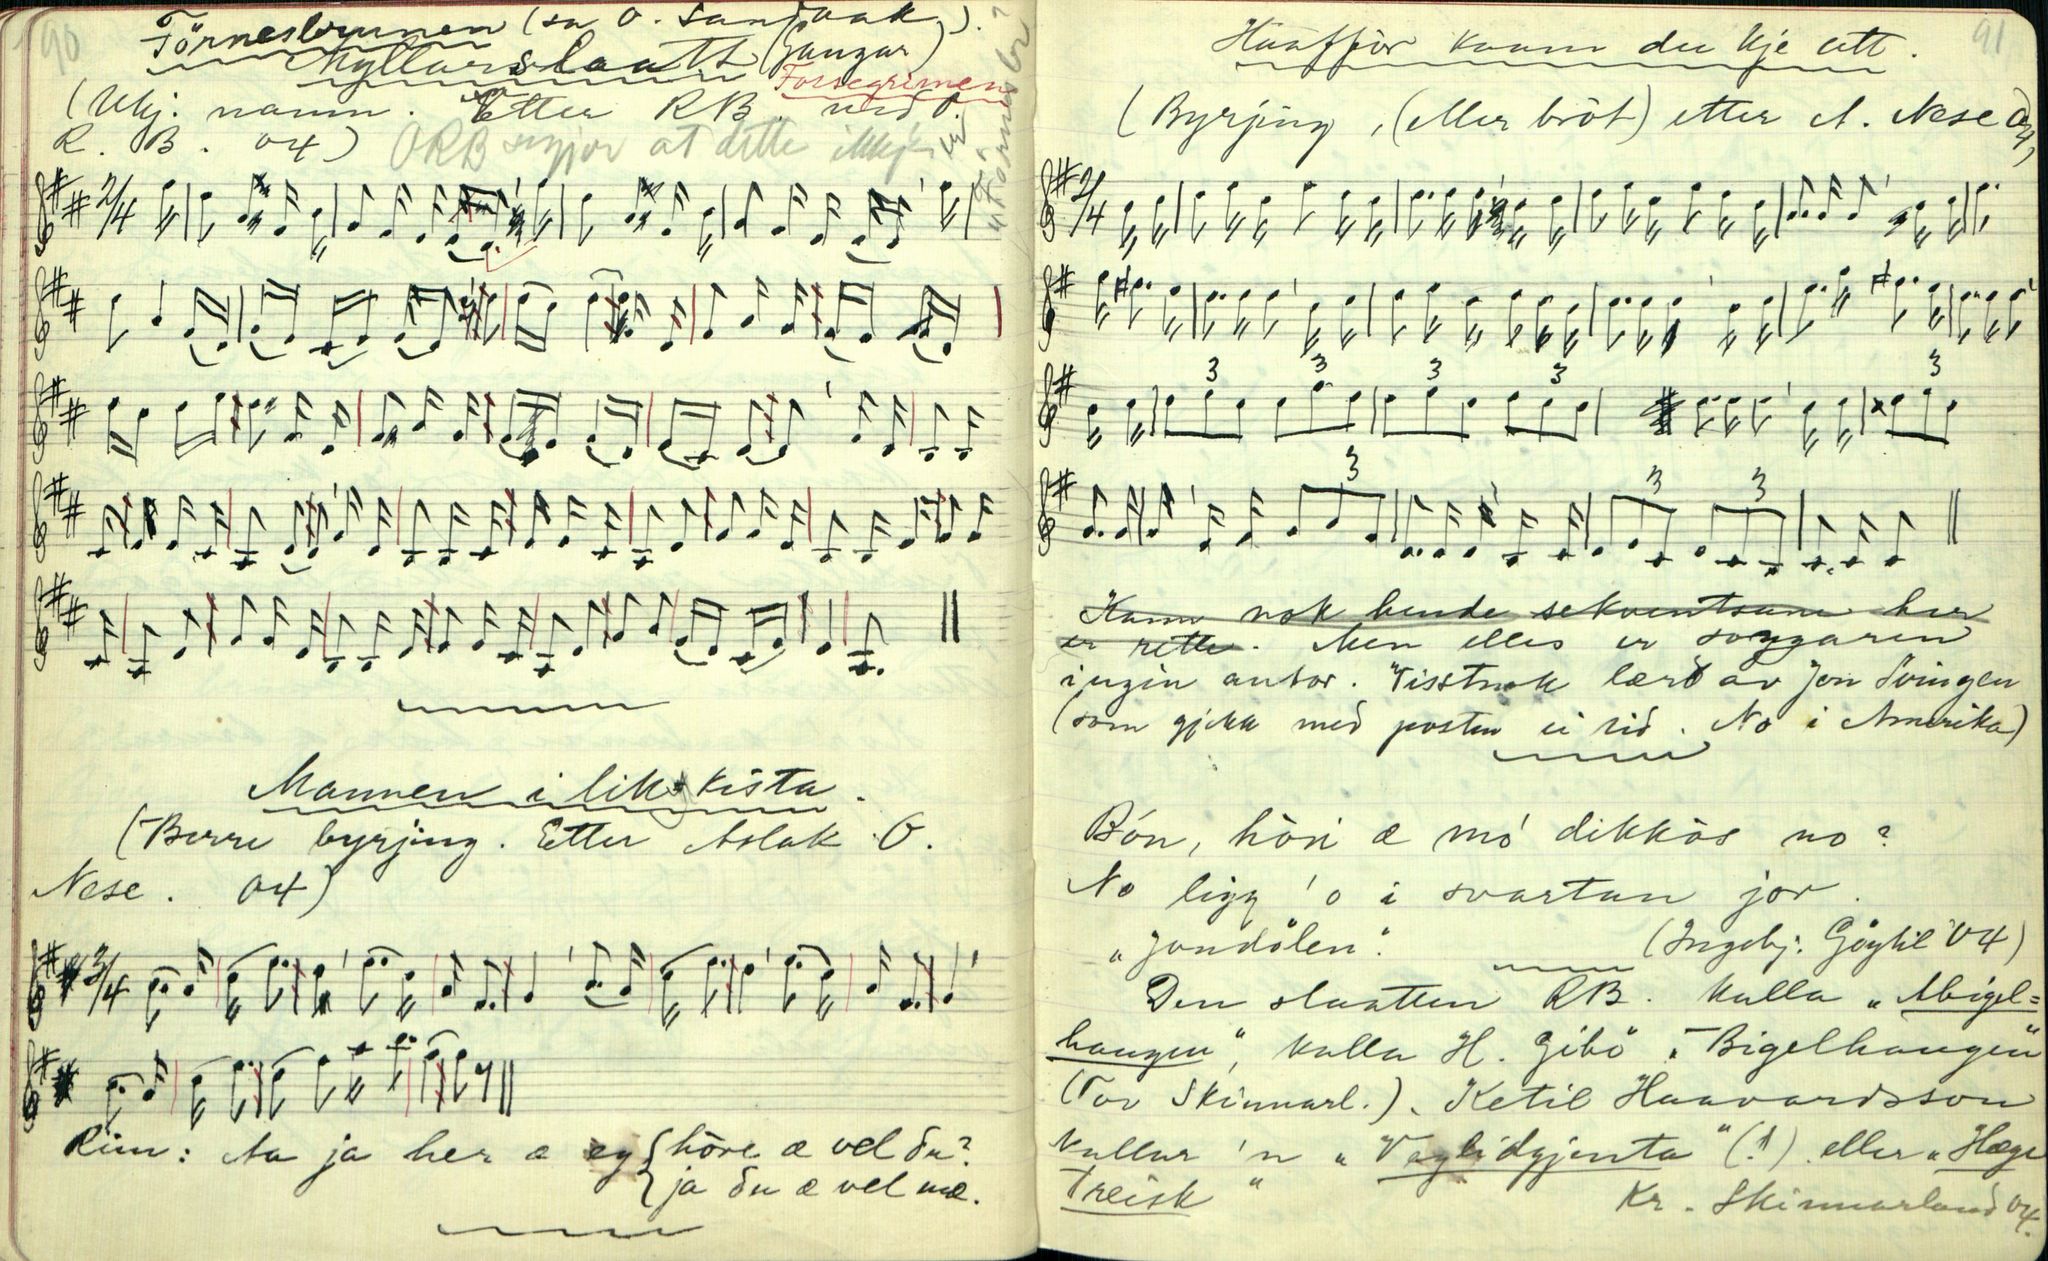 90
Förnesbrunen (sa O. Sandaak).
Myllarslaatt (Gangar)
Fossegrimen
(Ukj. namn. Etter RB. ved O.
R. B. 04)
ORB segjer at dette ikkje er
"Förnesbr."
2/4
Mannen i likkista.
(Berre byrjing. Etter Aslak O.
Nese. 04)
3/4
Rim: Aa ja her æ eg { höre æ vel du?
{ ja du æ vel mæ.
91
Haafför kaam du kje ått.
(Byrjing, (eller bröt) etter A. Nese 04)
2/4
3 3 3 3 3
3 3 3
Kann nok hende sekventsane her
er rette. Men elles er songaren
ingin autor. Visstnok lært av Jon Svingen
(som gjekk med posten ei tid. No i Amerika)
Bón, hòri æ mó dikkòs no?
No ligg 'o i svartan jor.
"Jondölen".
(Ingebj. Göytil 04)
Den slaatten RB. kalla "Abigel=
haugen", kalla H. Gibö "Bigelhaugen"
(Tor Skinnarl.). Ketil Haavardsson
kallar 'n "Veglidgjenta" (!) eller "Hæge
Treisk"
Kr. Skinnarland 04.